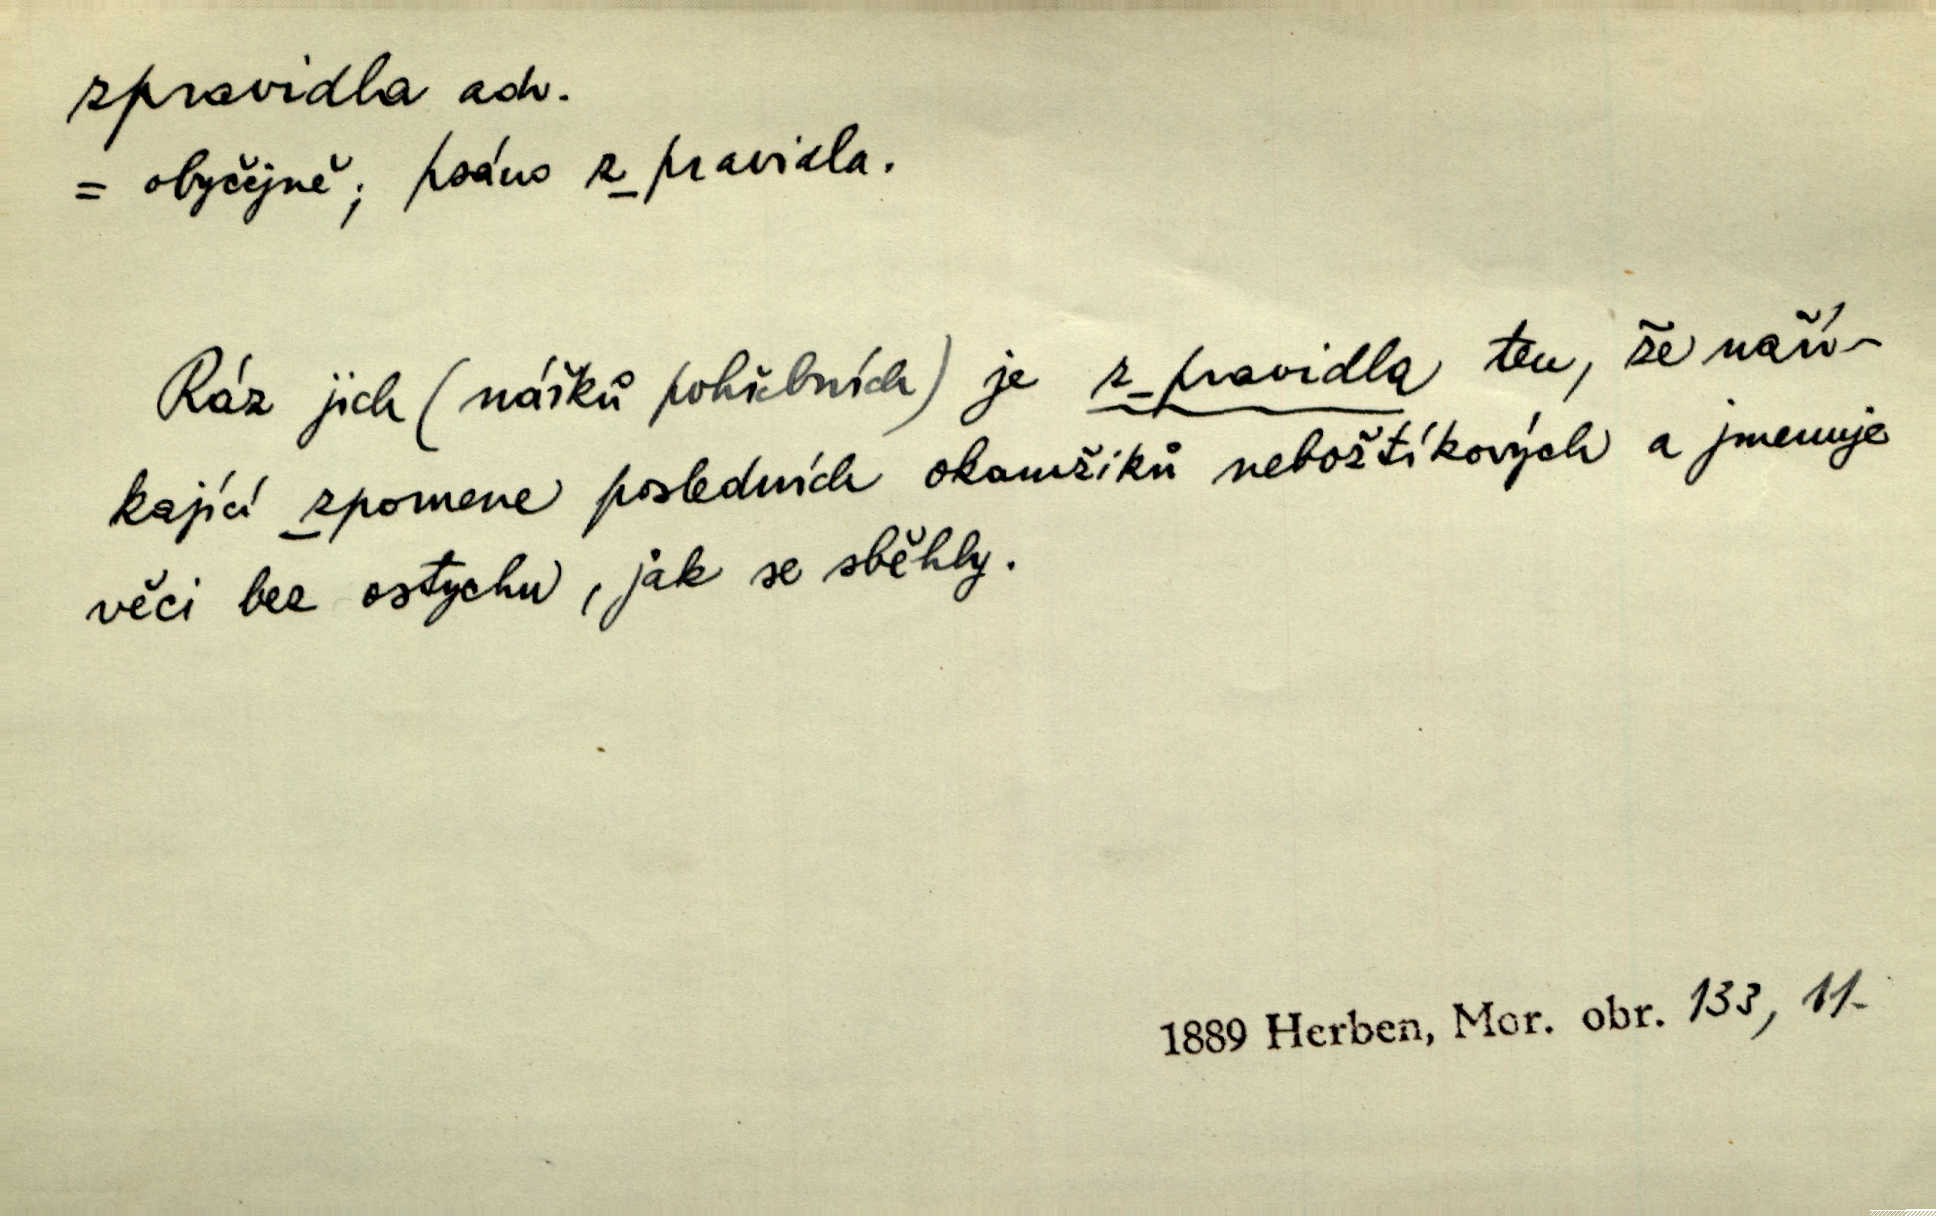 zpravidla adv.
= obyčejně; psáno z pravidla.
Ráz jich (nářků pohřebních) je z pravidla ten, že naří-
kající zpomene posledních okamžiků neboštíkových a jmenuje
věci bez ostychu, jak se sběhly.
1889 Herben, Mor. obr. 133, 11.